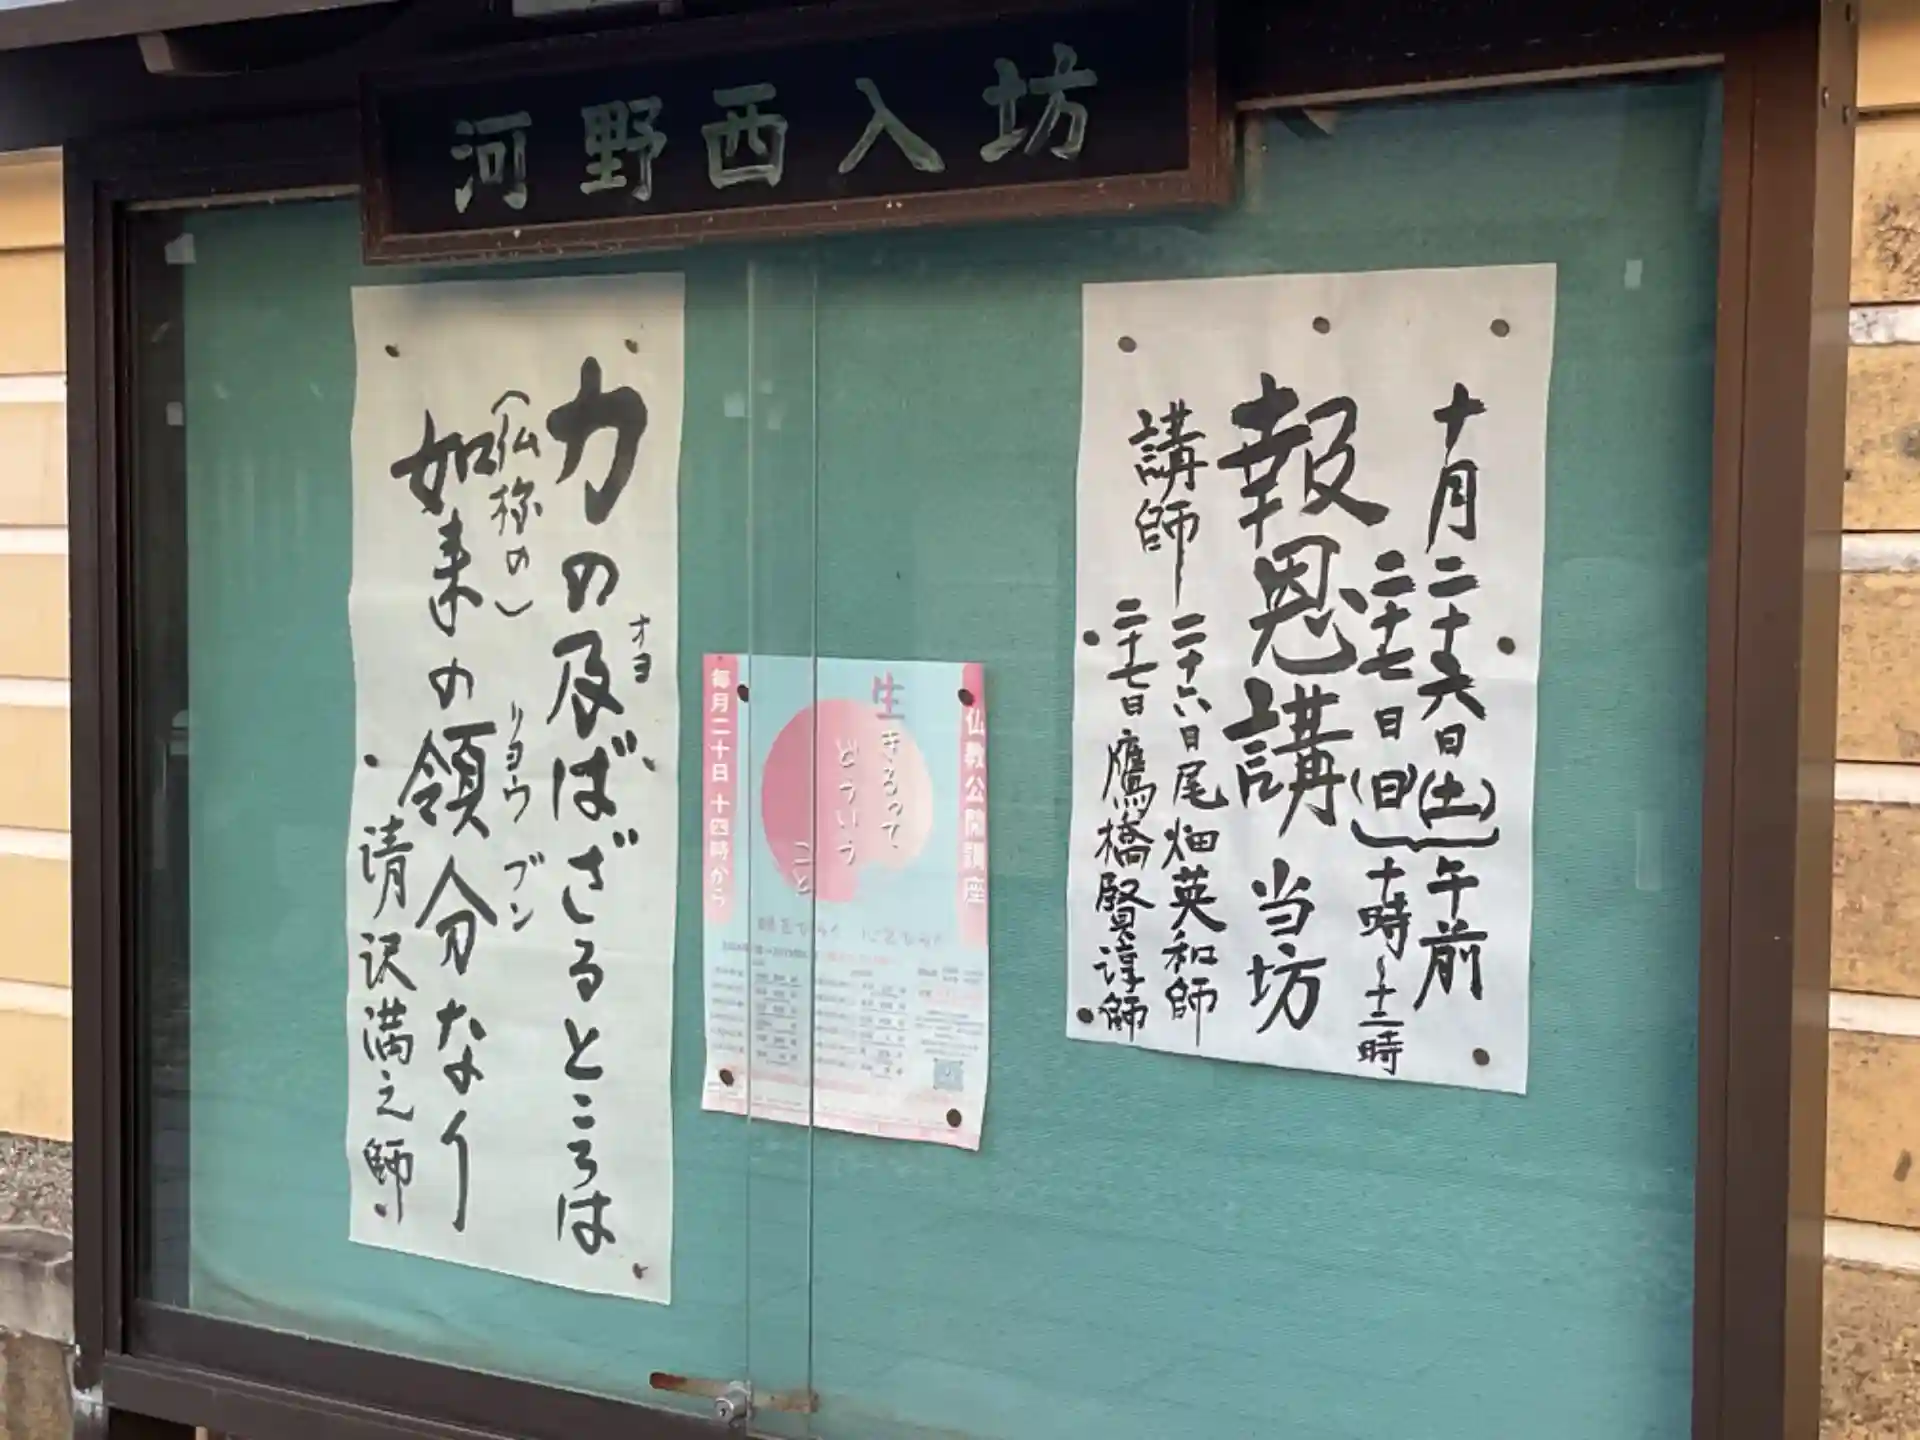 河野西入坊
十月二十六日(土)午前
二十七日(日)十時〜十二時
報恩講 当坊
講師 二十六日尾畑英和師
二十七日鷹橋賢淳師
仏教公開講座
生きるって
どういう
こと
毎月二十日 十四時から
力の及ばざるところは
オヨ
(仏祢の)
如来の領分なり
リヨウ ブン
清沢満之師